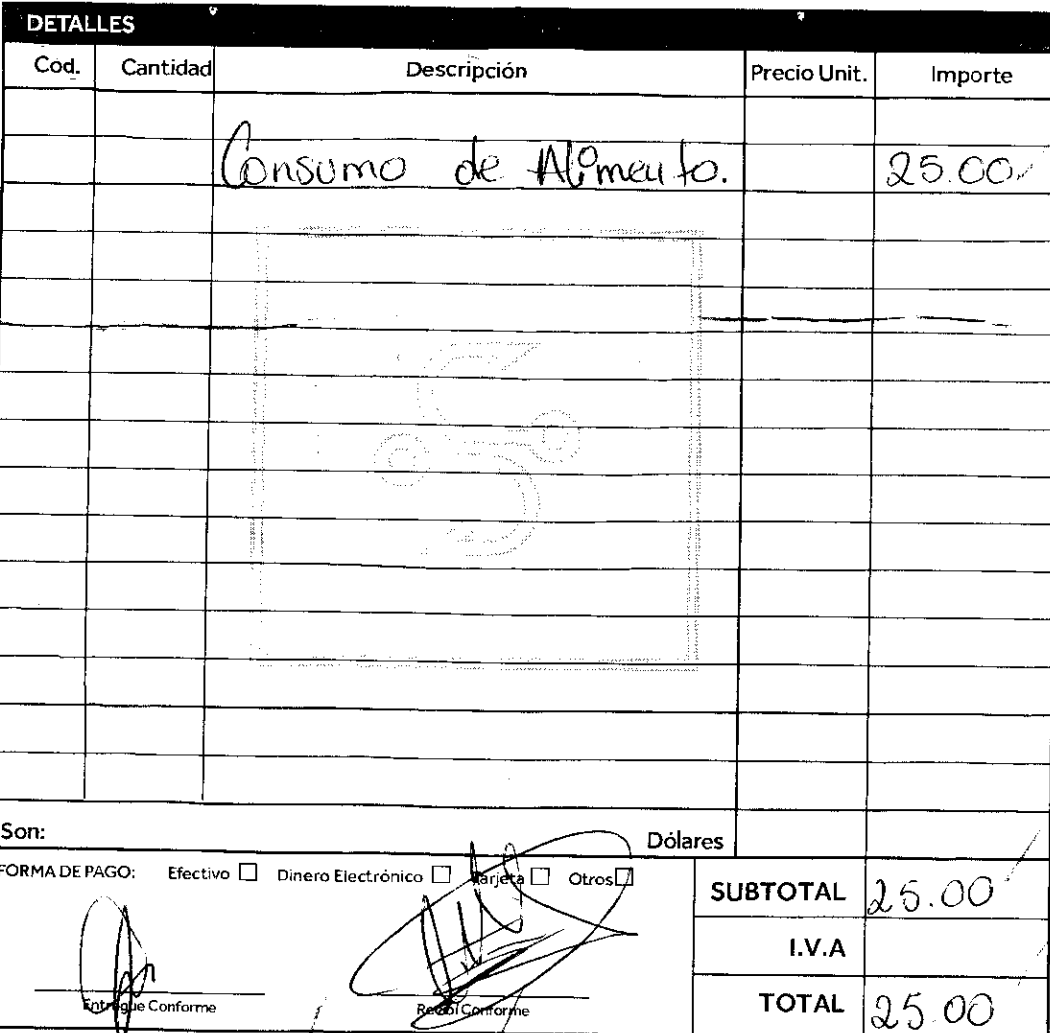 DETALLES
Cod. Cantidad Descripción Precio Unit. Importe
Consumo de Alimento. 25.00
Son: Dólares
FORMA DE PAGO: Efectivo Dinero Electrónico Tarjeta Otros
SUBTOTAL 25.00
I.V.A
Entregue Conforme Recibí Conforme
TOTAL 25.00